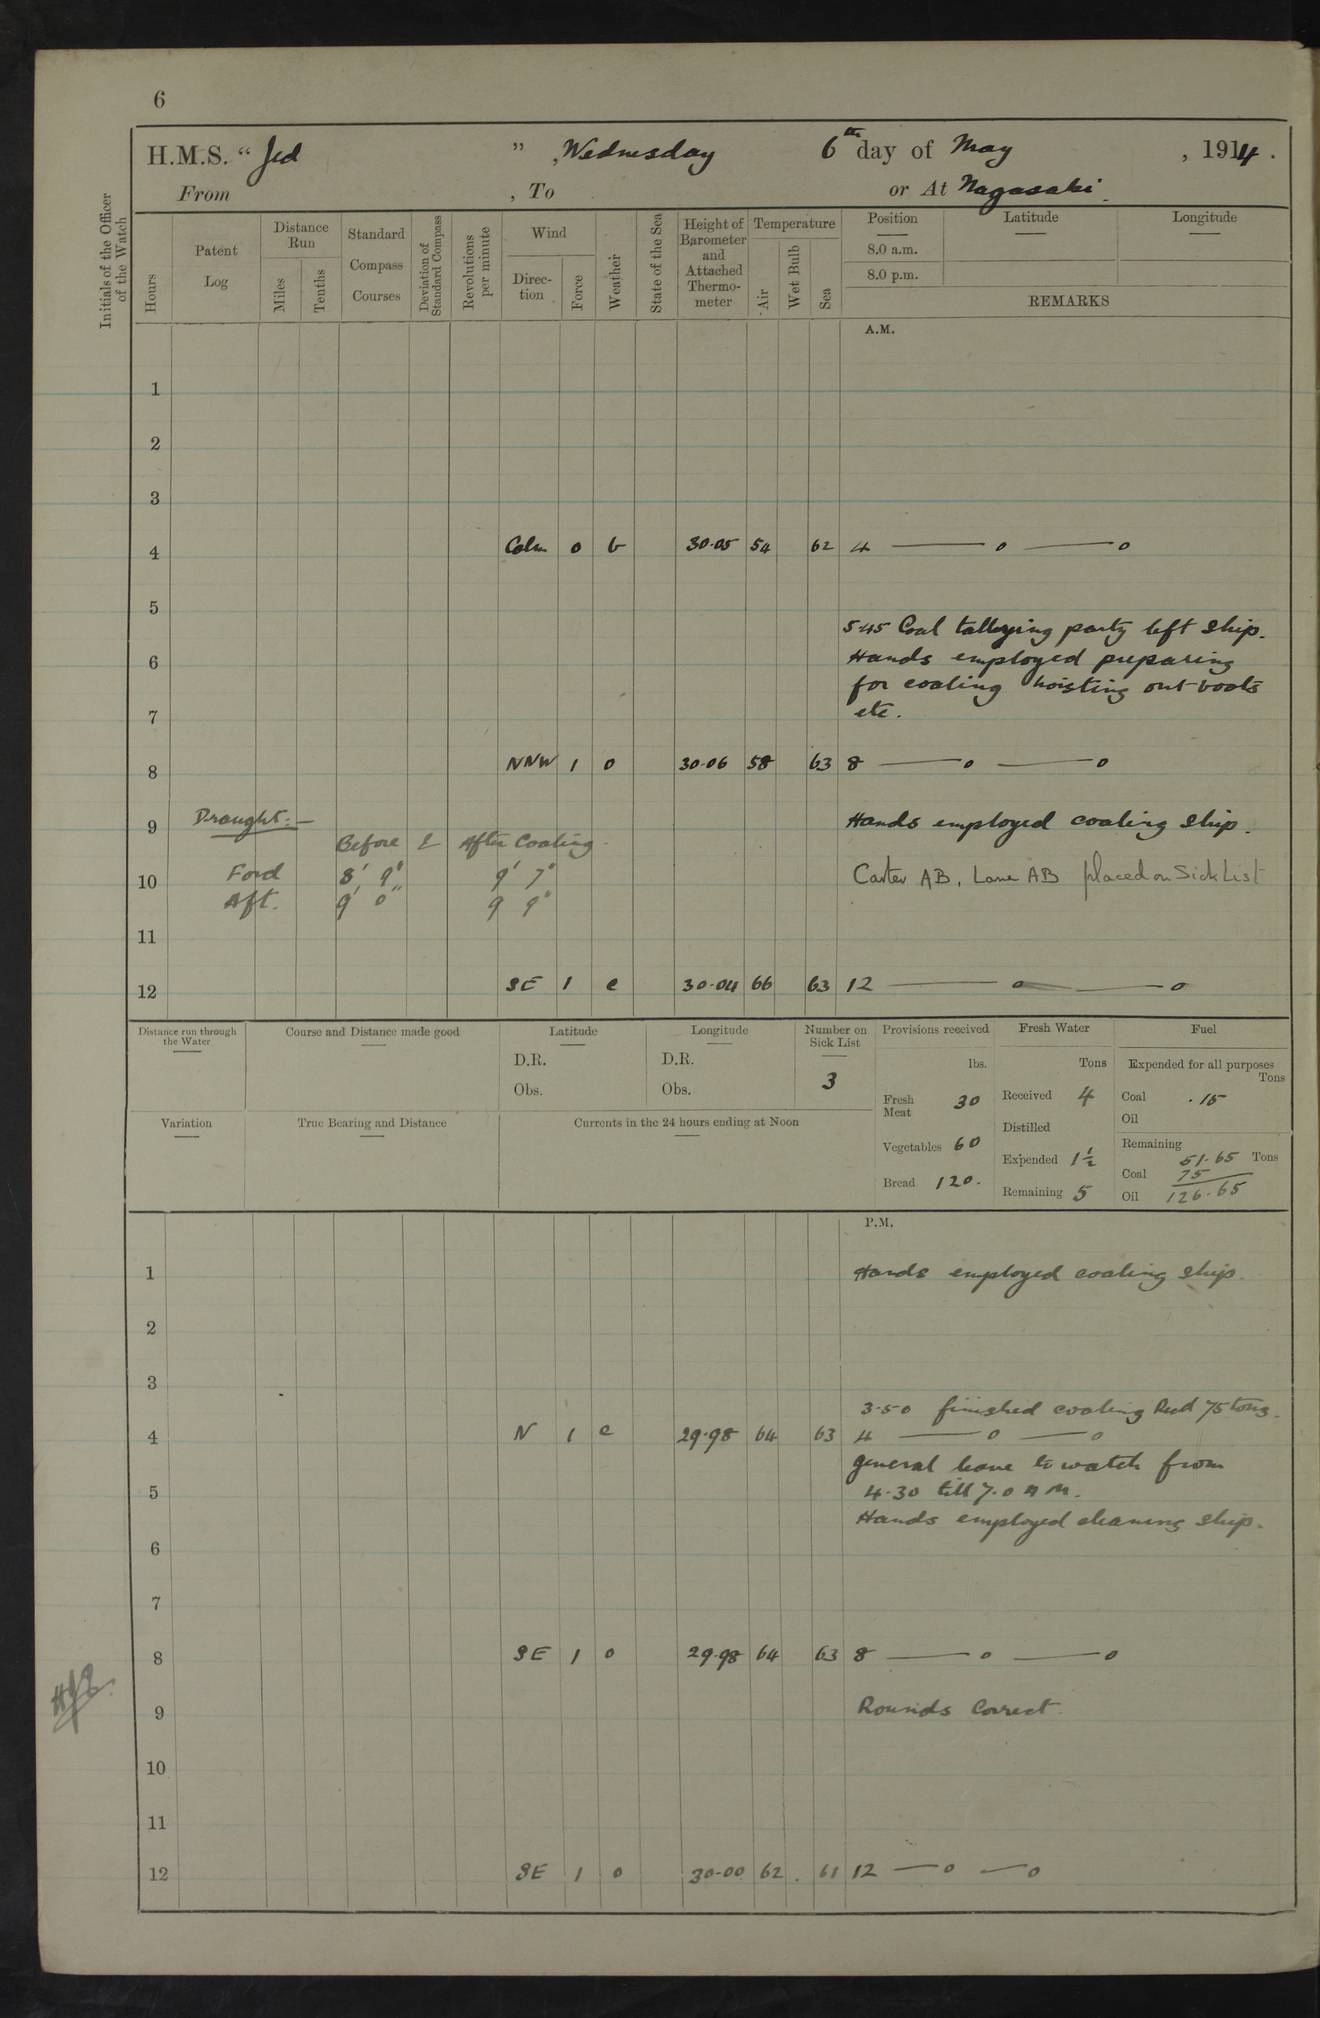 6
H.M.S. “ Jed ” , Wednesday 6th day of May , 1914 .
From , To or At Nagasaki.
Initials of the Officer of the Watch
Hours
Patent Log
Distance Run
Miles
Tenths
Standard Compass Courses
Deviation of Standard Compass
Revolutions per minute
Wind
Direction
Force
Weather
State of the Sea
Height of Barometer and Attached Thermometer
Temperature
Air
Wet Bulb
Sea
Position Latitude Longitude
8.0 a.m.
8.0 p.m.
REMARKS
A.M.
1
2
3
4 Calm 0 b 30·05 54 62 4 —— o —— o
5
5·45 Coal tallying party left ship.
6 Hands employed preparing
for coaling hoisting out boats
7 etc.
8 NNW 1 o 30·06 58 63 8 —— o —— o
9 Draught:— Hands employed coaling ship.
Before & After Coaling.
10 Ford 8' 9" 9' 7" Carter AB, Lane AB placed on Sick List
Aft. 9' 0" 9 9"
11
12 SE 1 c 30·04 66 63 12 —— o —— o
Distance run through the Water
Course and Distance made good
Latitude
D.R.
Obs.
Longitude
D.R.
Obs.
Number on Sick List
3
Variation
True Bearing and Distance
Currents in the 24 hours ending at Noon
Provisions received
lbs.
Fresh Meat 30
Vegetables 60
Bread 120.
Fresh Water
Tons
Received 4
Distilled
Expended 1½
Remaining 5
Fuel
Expended for all purposes
Tons
Coal ·15
Oil
Remaining
51·65 Tons
Coal 75
Oil 126·65
P.M.
1 Hands employed coaling ship.
2
3
3·50 finished coaling Recd 75 tons.
4 N 1 c 29·98 64 63 4 —— o —— o
general leave to watch from
5 4·30 till 7.0 AM.
Hands employed cleaning ship.
6
7
8 SE 1 o 29·98 64 63 8 —— o —— o
9 Rounds Correct.
10
11
12 SE 1 o 30·00 62 . 61 12 — o — o